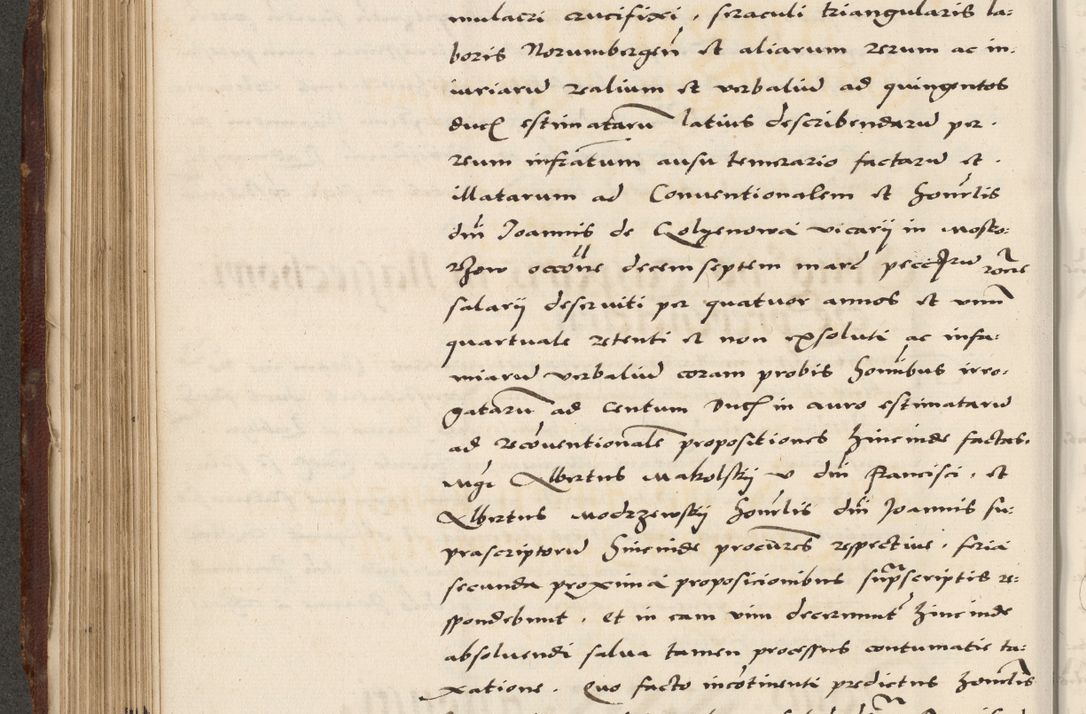 mulacri crucifixi, seraculi triangularis la:
boris Norumbergeñ et aliarum rerum ac in:
iuriarū realium et verbaliū ad quingentos
duc estimatarū latius describendarū per
reum infratum ausu temerario factarū et
illatarum ad Conuentionalem et honrlis
dni Joannis de Golyenowa vicarij in Mosko:
rzow occōne decem septem marc peccrū rōne
salarij deseruiti per quatuor annos et vnū
quartuale retenti et non exsoluti ac infa:
miarū verbaliū coram probis homībus irro:
gatarū ad Centum Duc in auro estimatarū
ad recōuentionalē propositiones hincinde factas.
Mgri Albertus Makolskij v dni Francisci, et
Albertus Modrzewskij honrlis dni Joannis su:
prascriptorū hincinde procūres respectiue, feria
secunda proxima propositionibus suprascriptis re:
spondebunt. Et in eam vim decernunt hincinde
absoluendi salua tamen processus contumatie ta:
xatione. Quo facto incōtinenti predictus honrlis